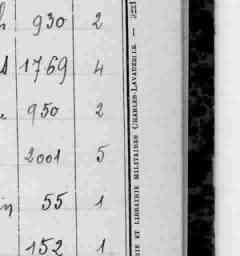 h 930 2
s 1769 4
e 950 2
2001 5
in 55 1
152 1
IE ET LIBRAIRIE MILITAIRES CHARLES-LAVAUZELLE —